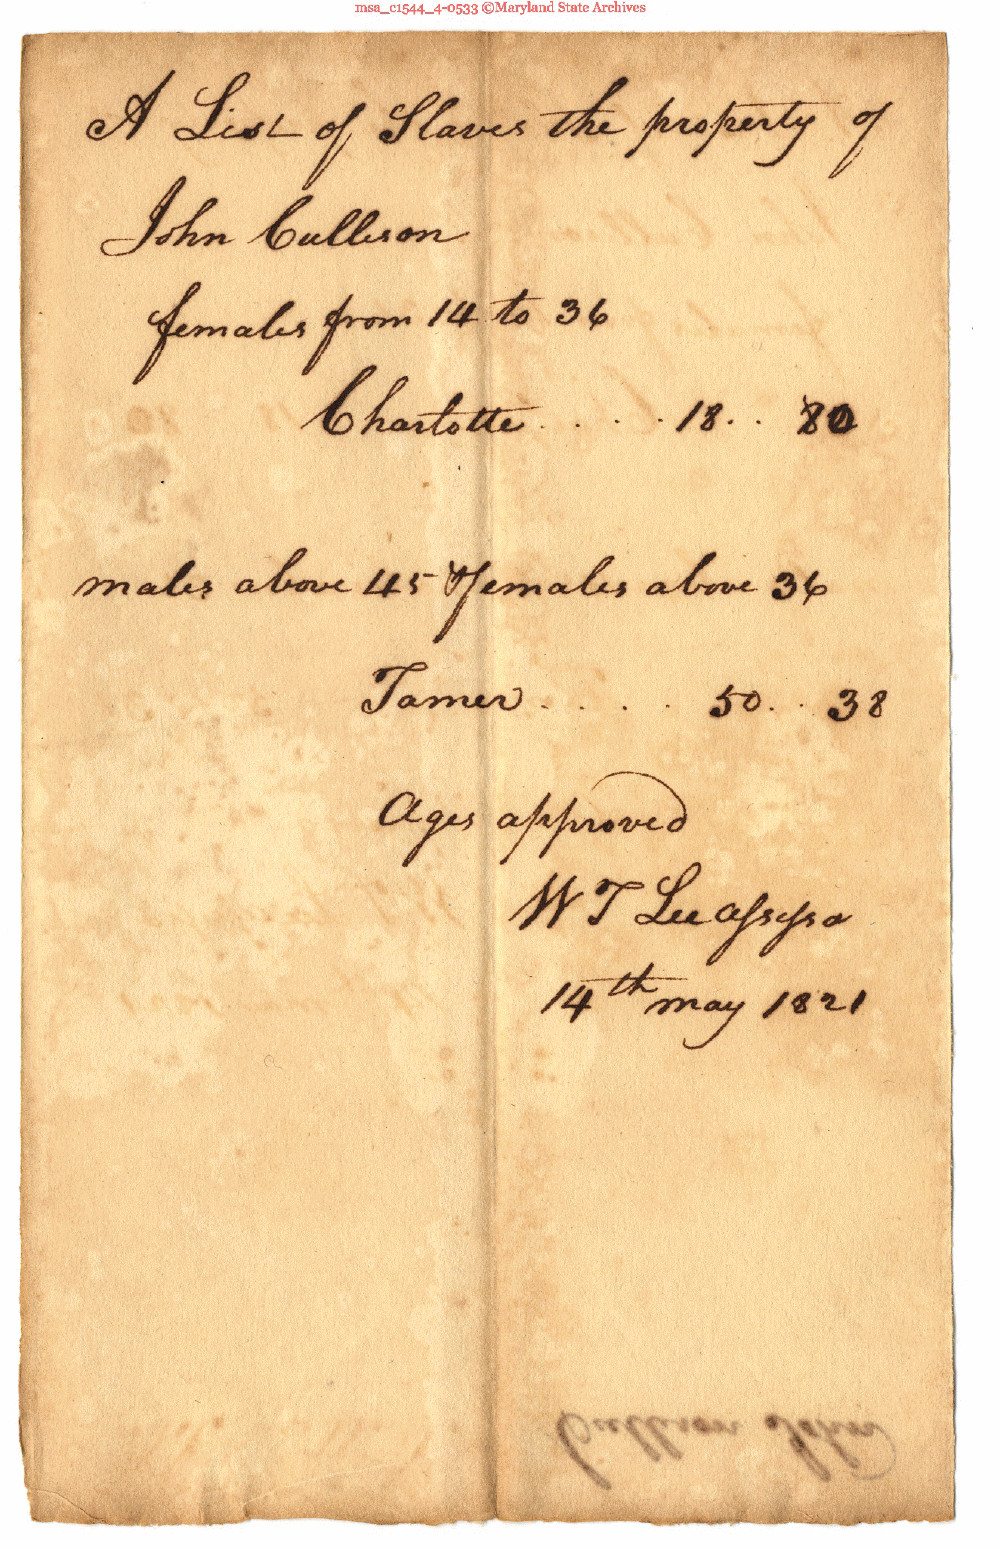 msa_c1544_4-0533 ©Maryland State Archives
A List of Slaves the property of
John Cullison
females from 14 to 36
Charlotte . . . . 18 . . 80
males above 45 & females above 36
Tamer . . . . 50 . . 38
Ages approved
W T Lee assessr
14th may 1821
Cullison John